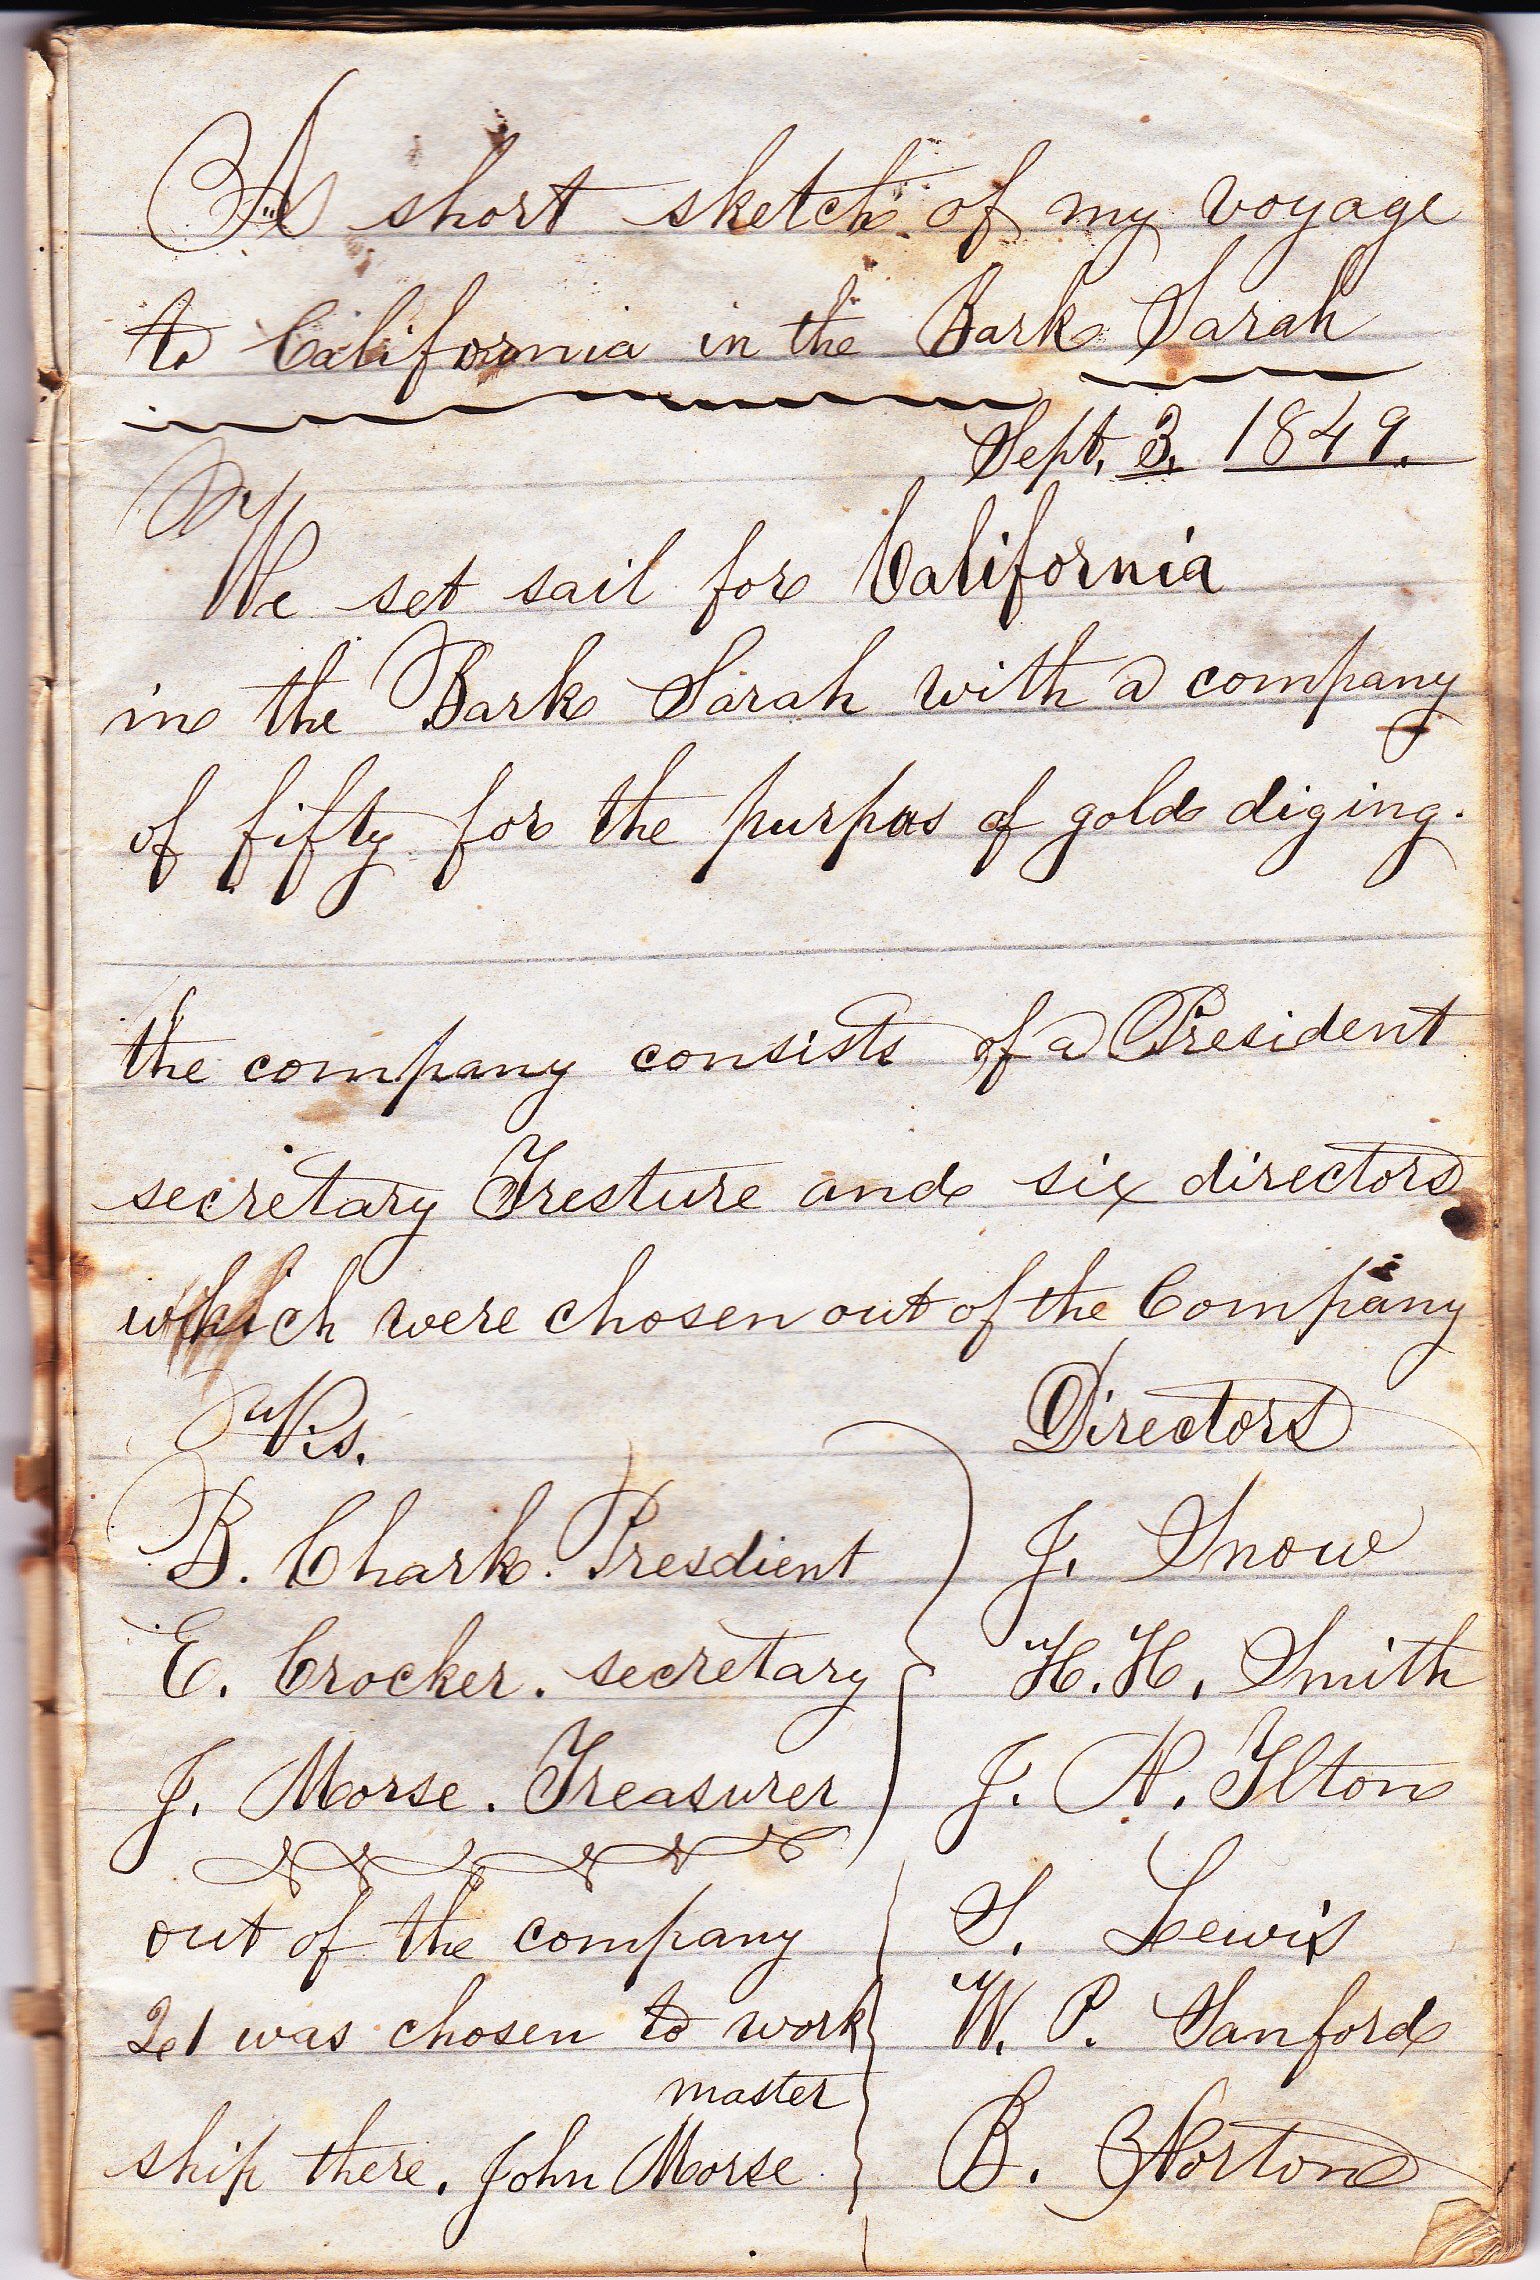 A short sketch of my voyage
to California in the Bark Sarah
Sept. 3. 1849.
We set sail for California
in the Bark Sarah with a company
of fifty for the purpos of gold diging.
the company consists of a President
secretary Tresture and six directors
which were chosen out of the Company
Vis.
B. Chark. Presdient
E. Crocker. secretary
J. Morse. Treasurer
out of the company
21 was chosen to work
master
ship there. John Morse
Directors
J. Snow
H. H. Smith
J. N. Ilton
S. Lewis
W. P. Sanford
B. Norton